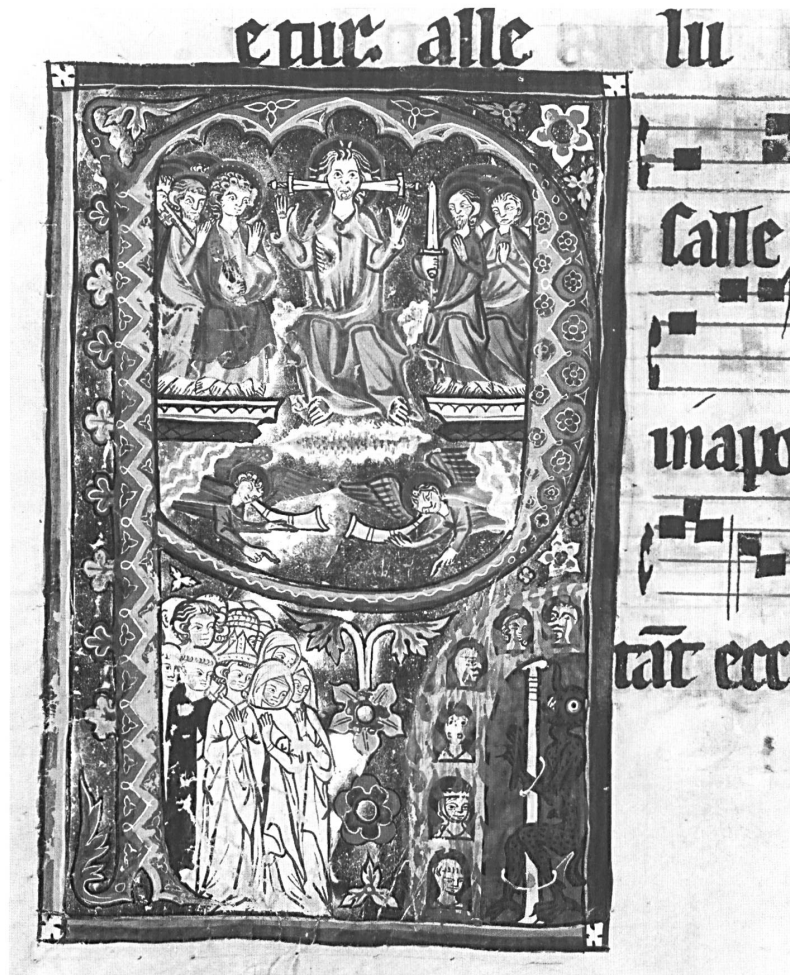 etur alle lu
salle
inapo
tāt ecc